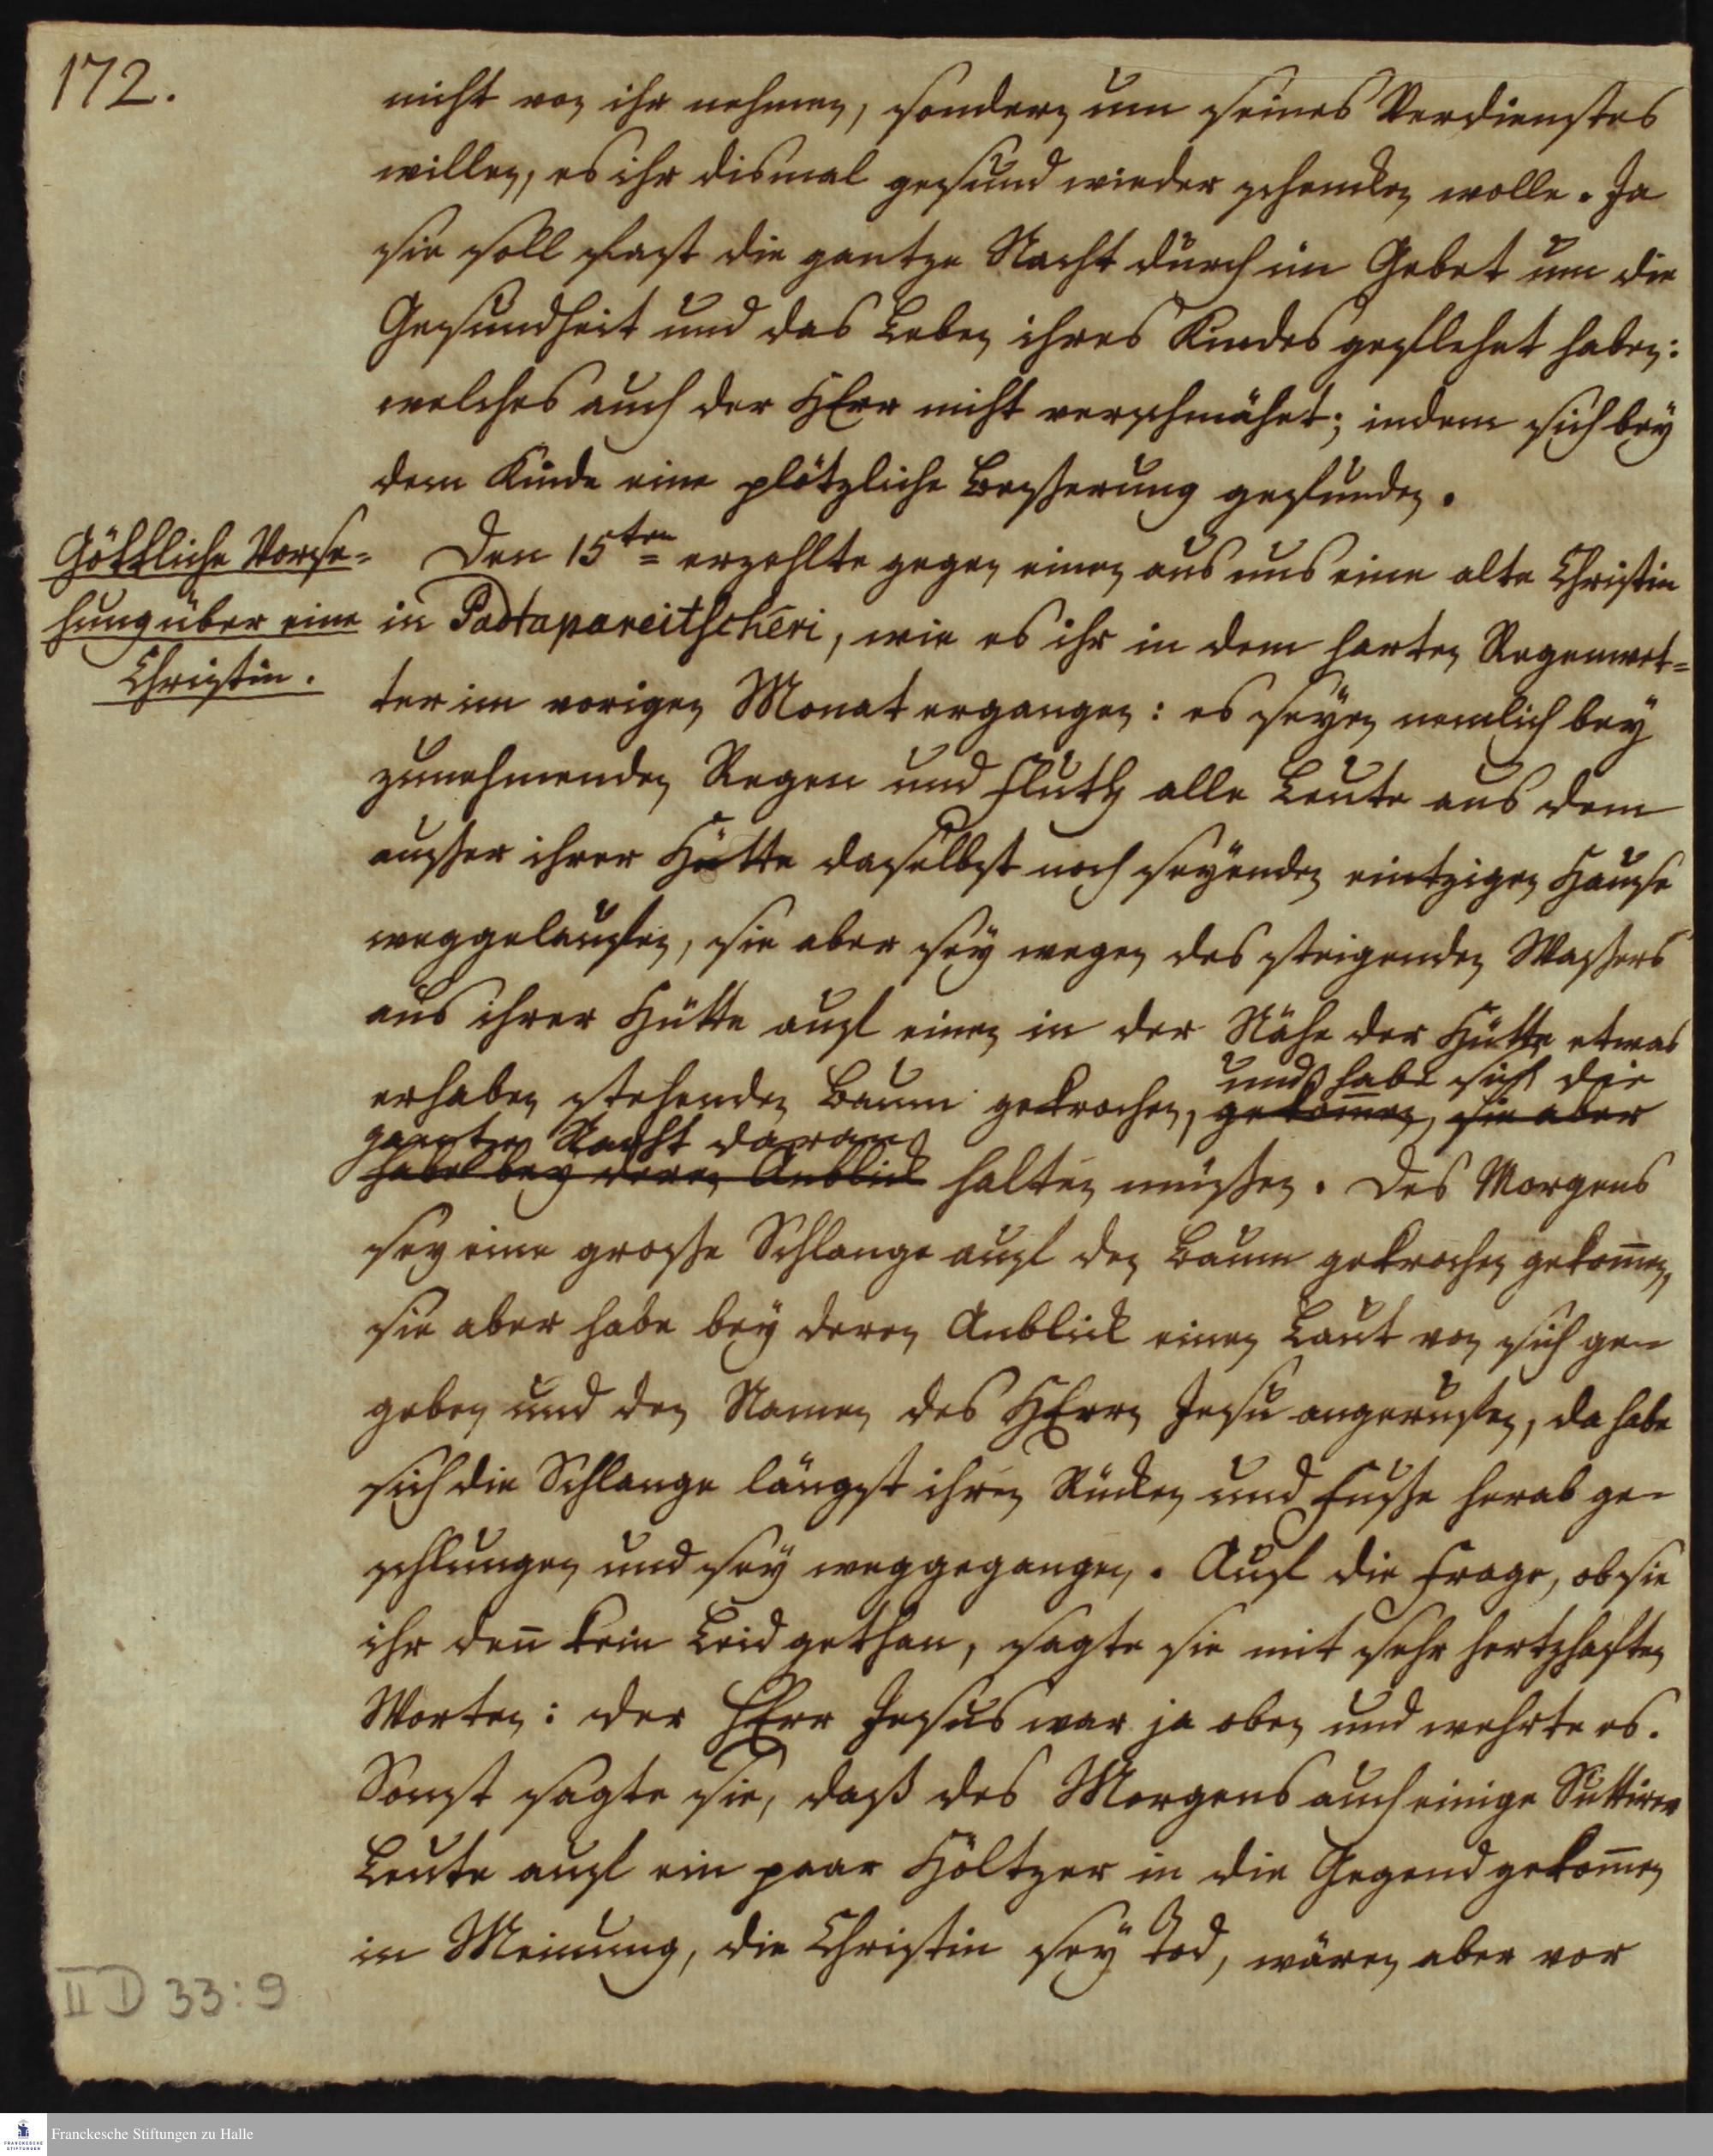 172.
nicht von ihr nehmen, sondern um seines Verdienstes
willen, es ihr dismal gesund wieder schencken wolle. Ja
sie soll fast die gantze Nacht durch im Gebet um die
Gesundheit und das Leben ihres Kindes geflehet haben:
welches auch der HErr nicht verschmähet; indem sich bey
dem Kinde eine plötzliche Besserung gefunden.
Göttliche Vorse-
hung über eine
Christin.
Den 15ten erzehlte gegen einen aus uns eine alte Christin
in Padtapareitscheri, wie es ihr in dem harten Regenwet-
ter im vorigen Monat ergangen: es seyen nemlich bey
zunehmenden Regen und Fluth alle Leute aus dem
ausser ihrer Hütte daselbst noch seyenden eintzigen Hause
weggelauffen, sie aber sey wegen des steigenden Wassers
aus ihrer Hütte auf einen in der Nähe der Hütte etwas
und habe sich die
erhaben stehenden Baum gekrochen, gekom̄en, sie aber
gantze Nacht daran
habe bey deren Anblick halten müssen. Des Morgens
sey eine grosse Schlange auf den Baum gekrochen gekom̄en,
sie aber habe bey deren Anblick einen Laut von sich ge-
geben und den Namen des HErrn Jesu angeruffen, da habe
sich die Schlange längst ihren Rücken und Fusse herab ge-
schlungen und sey weggegangen. Auf die Frage, ob sie
ihr den̄ kein Leid gethan, sagte sie mit sehr hertzhaften
Worten: der HErr Jesus war ja oben und wehrte es.
Sonst sagte sie, daß des Morgens auch einige Suttirer
Leute auf ein paar Höltzer in die Gegend gekom̄en
in Meinung, die Christin sey Tod, wären aber vor
II D 33:9
Franckesche Stiftungen zu Halle
FRANCKESCHE
STIFTUNGEN